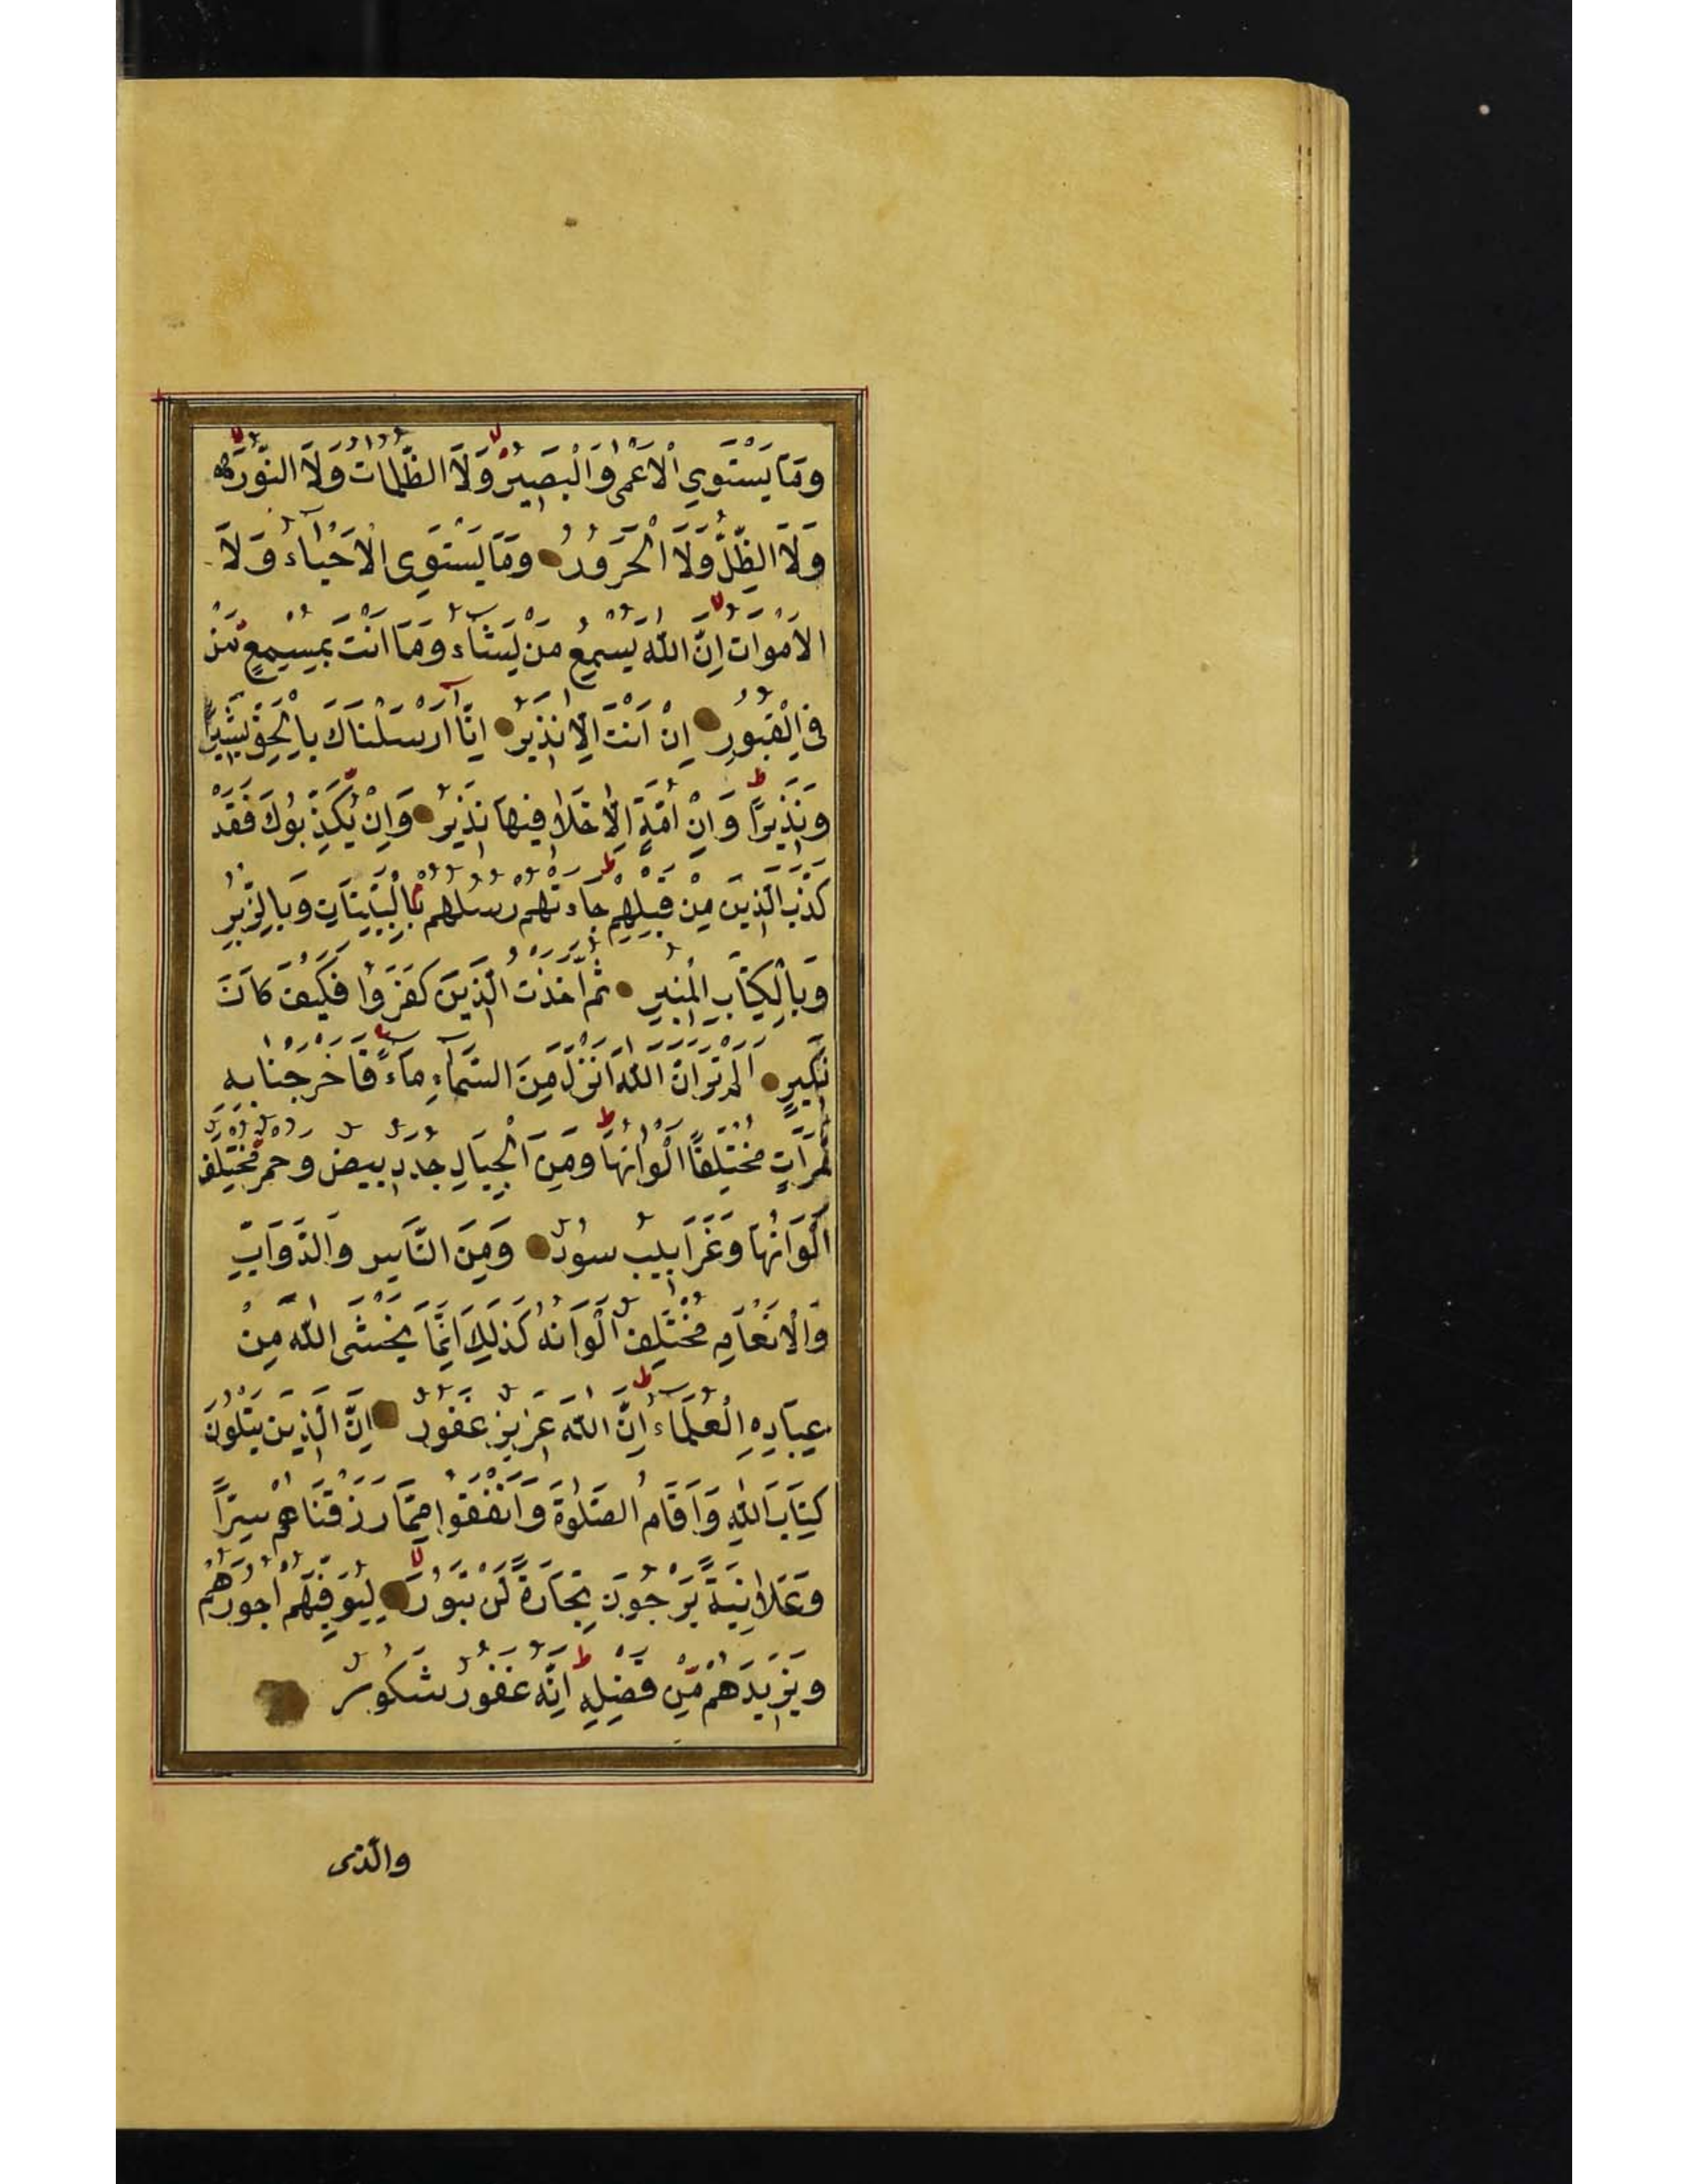 وَمَا يَسْتَوِي الْاَعْمٰى وَالْبَصِيرُ وَلَا الظُّلُمَاتُ وَلَا النُّورُ
وَلَا الظِّلُّ وَلَا الْحَرُورُ وَمَا يَسْتَوِى الْاَحْيَاءُ وَلَا
الْاَمْوَاتُ اِنَّ اللّٰهَ يُسْمِعُ مَنْ يَشَاءُ وَمَا اَنْتَ بِمُسْمِعٍ مَنْ
فِى الْقُبُورِ اِنْ اَنْتَ اِلَّا نَذِيرٌ اِنَّا اَرْسَلْنَاكَ بِالْحَقِّ بَشِيرًا
وَنَذِيرًا وَاِنْ اُمَّةٍ اِلَّا خَلَا فِيهَا نَذِيرٌ وَاِنْ يُكَذِّبُوكَ فَقَدْ
كَذَّبَ الَّذِينَ مِنْ قَبْلِهِمْ جَاءَتْهُمْ رُسُلُهُمْ بِالْبَيِّنَاتِ وَبِالزُّبُرِ
وَبِالْكِتَابِ الْمُنِيرِ ثُمَّ اَخَذْتُ الَّذِينَ كَفَرُوا فَكَيْفَ كَانَ
نَكِيرِ اَلَمْ تَرَ اَنَّ اللّٰهَ اَنْزَلَ مِنَ السَّمَاءِ مَاءً فَاَخْرَجْنَا بِهِ
ثَمَرَاتٍ مُخْتَلِفًا اَلْوَانُهَا وَمِنَ الْجِبَالِ جُدَدٌ بِيضٌ وَحُمْرٌ مُخْتَلِفٌ
اَلْوَانُهَا وَغَرَابِيبُ سُودٌ وَمِنَ النَّاسِ وَالدَّوَابِّ
وَالْاَنْعَامِ مُخْتَلِفٌ اَلْوَانُهُ كَذٰلِكَ اِنَّمَا يَخْشَى اللّٰهَ مِنْ
عِبَادِهِ الْعُلَمَاءُ اِنَّ اللّٰهَ عَزِيزٌ غَفُورٌ اِنَّ الَّذِينَ يَتْلُونَ
كِتَابَ اللّٰهِ وَاَقَامُ الصَّلٰوةَ وَاَنْفَقُوا مِمَّا رَزَقْنَاهُمْ سِرًّا
وَعَلَانِيَةً يَرْجُونَ تِجَارَةً لَنْ تَبُورَ لِيُوَفِّيَهُمْ اُجُورَهُمْ
وَيَزِيدَهُمْ مِنْ فَضْلِهِ اِنَّهُ غَفُورٌ شَكُورٌ
والّذى